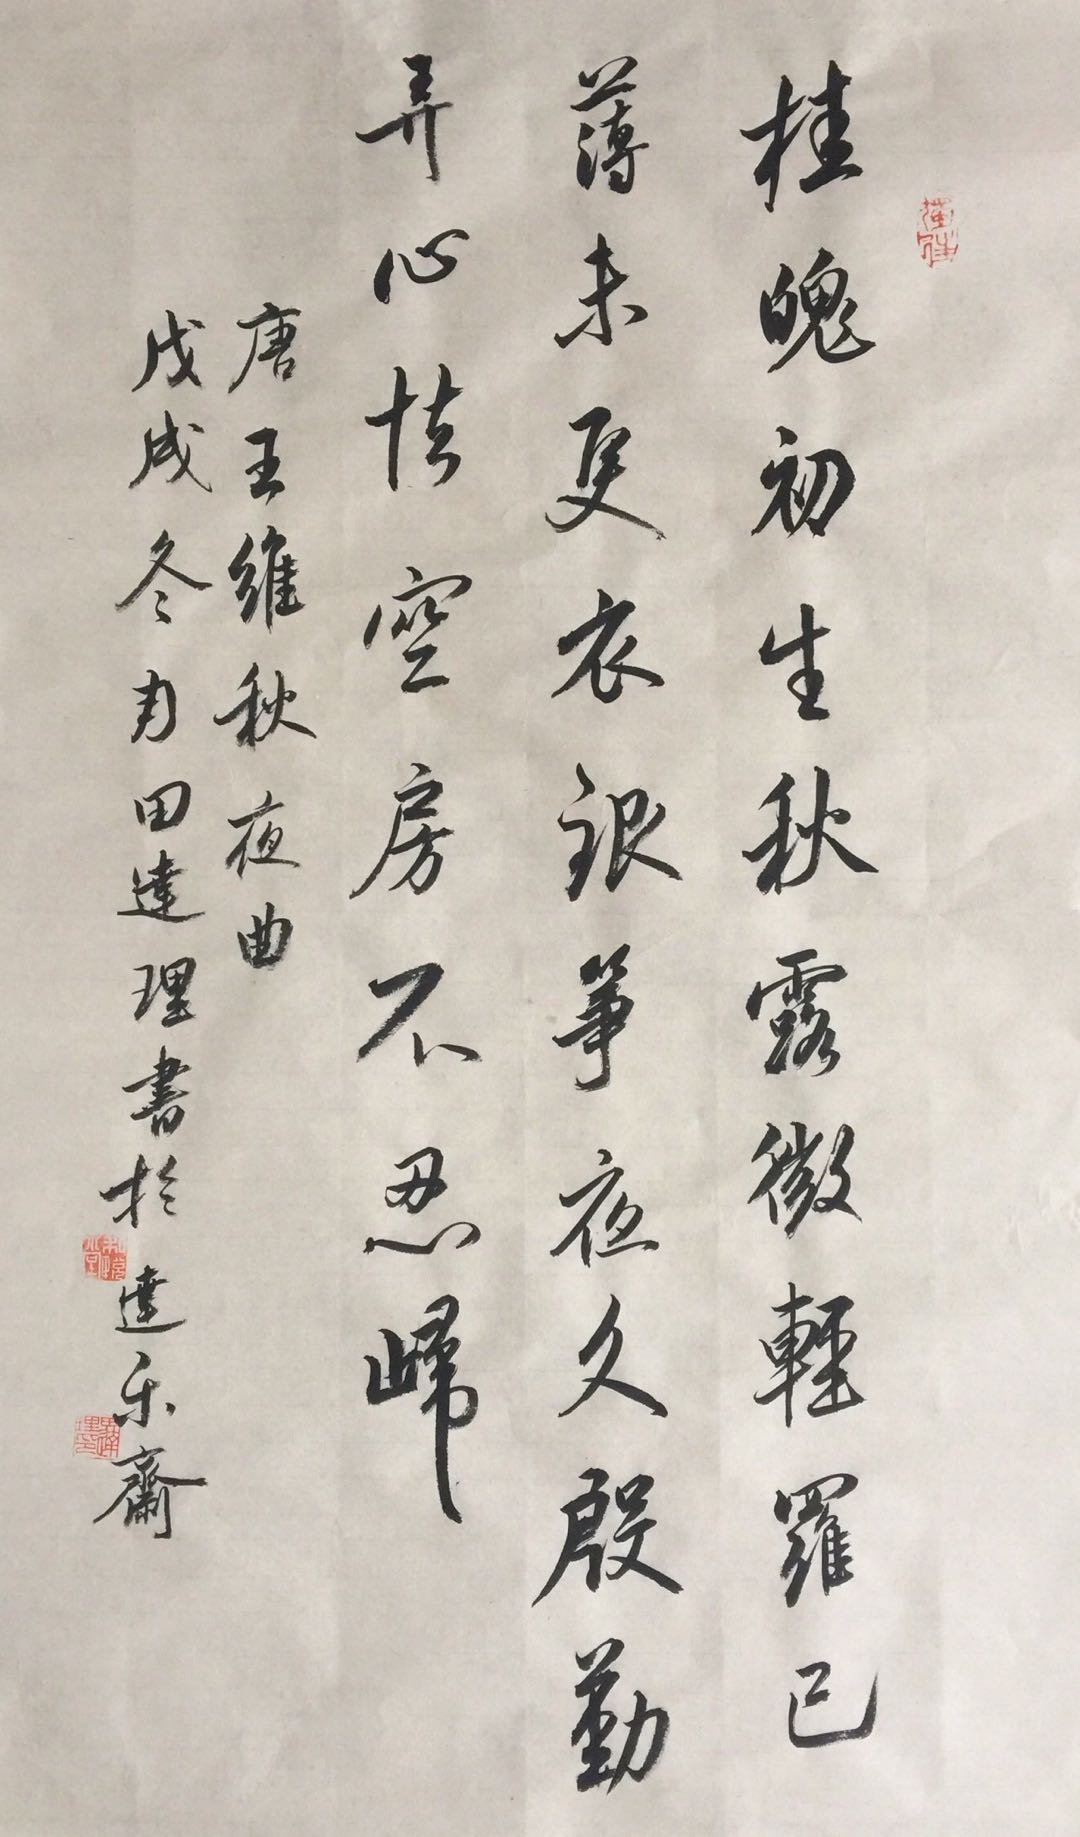 桂魄初生秋露微輕羅已
薄未更衣銀箏夜久殷勤
弄心怯空房不忍歸
唐王維秋夜曲
戊戌冬月田達理書於達乐齋